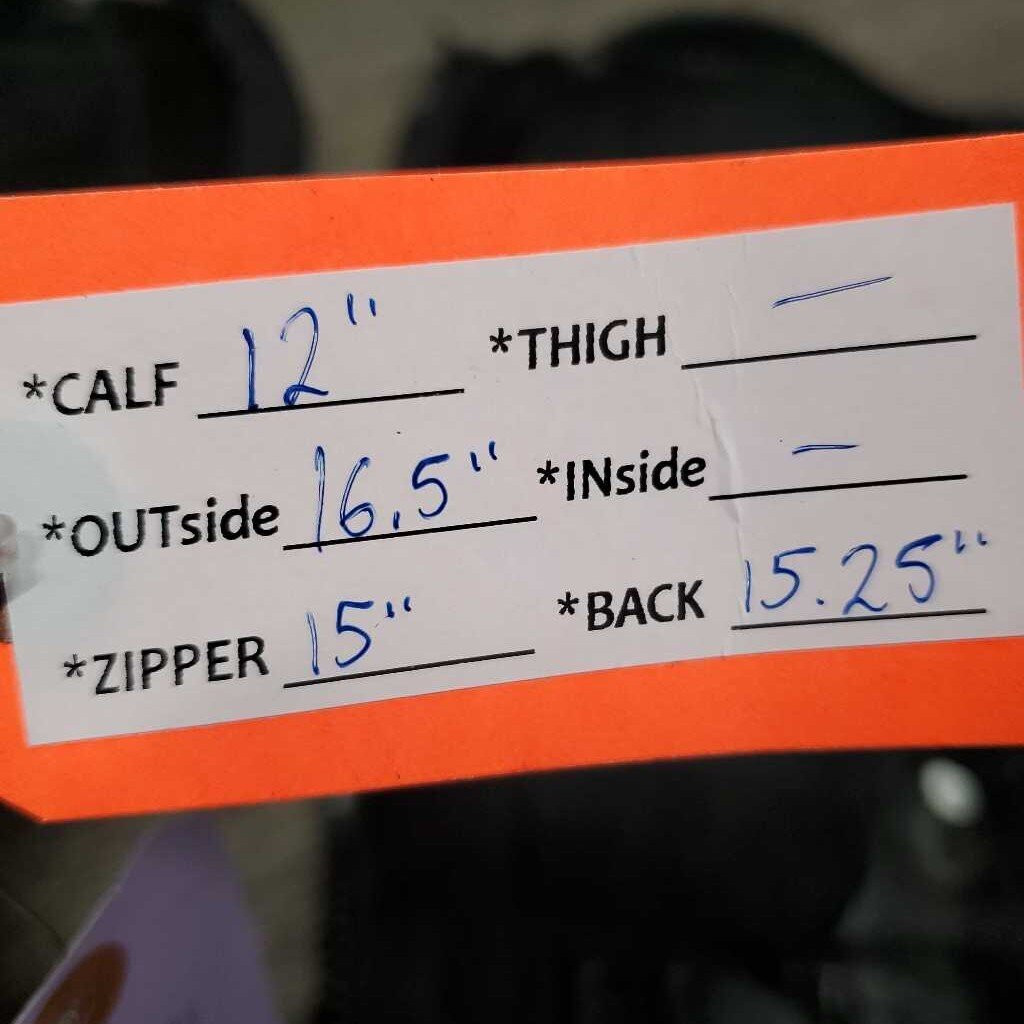 *CALF 12" *THIGH —
*OUTside 16.5" *INside —
*ZIPPER 15" *BACK 15.25"